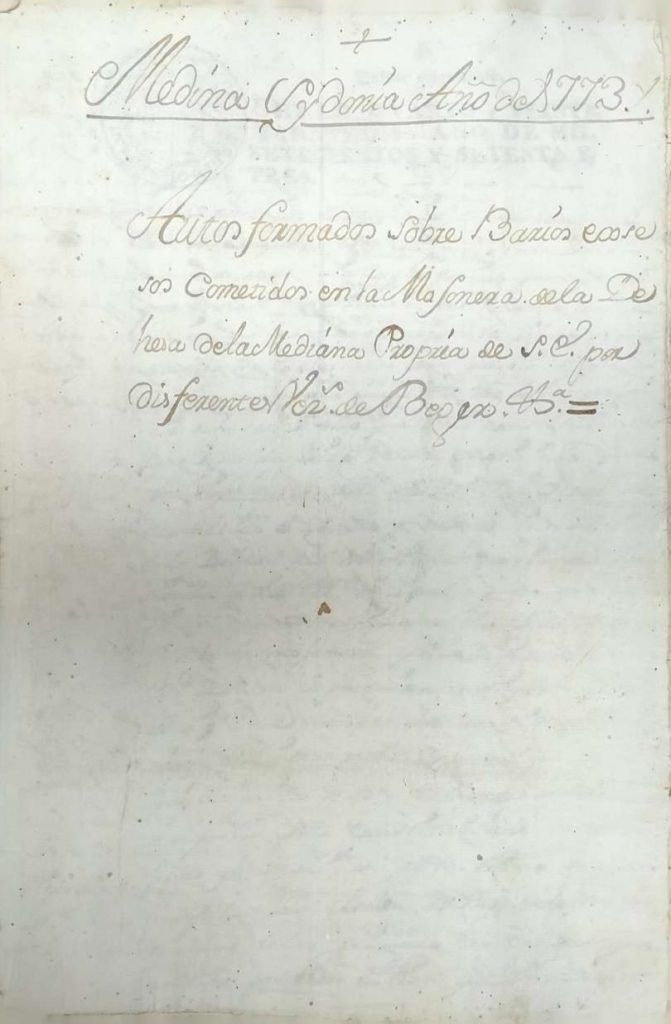 +
Medina Sydonia Año de 1773.
Autos formados sobre Barios exse
sos Cometidos en la Masonera de la De
hesa de la Mediana Propria de S.E. por
disferentes Vez.s de Begex. &.a =